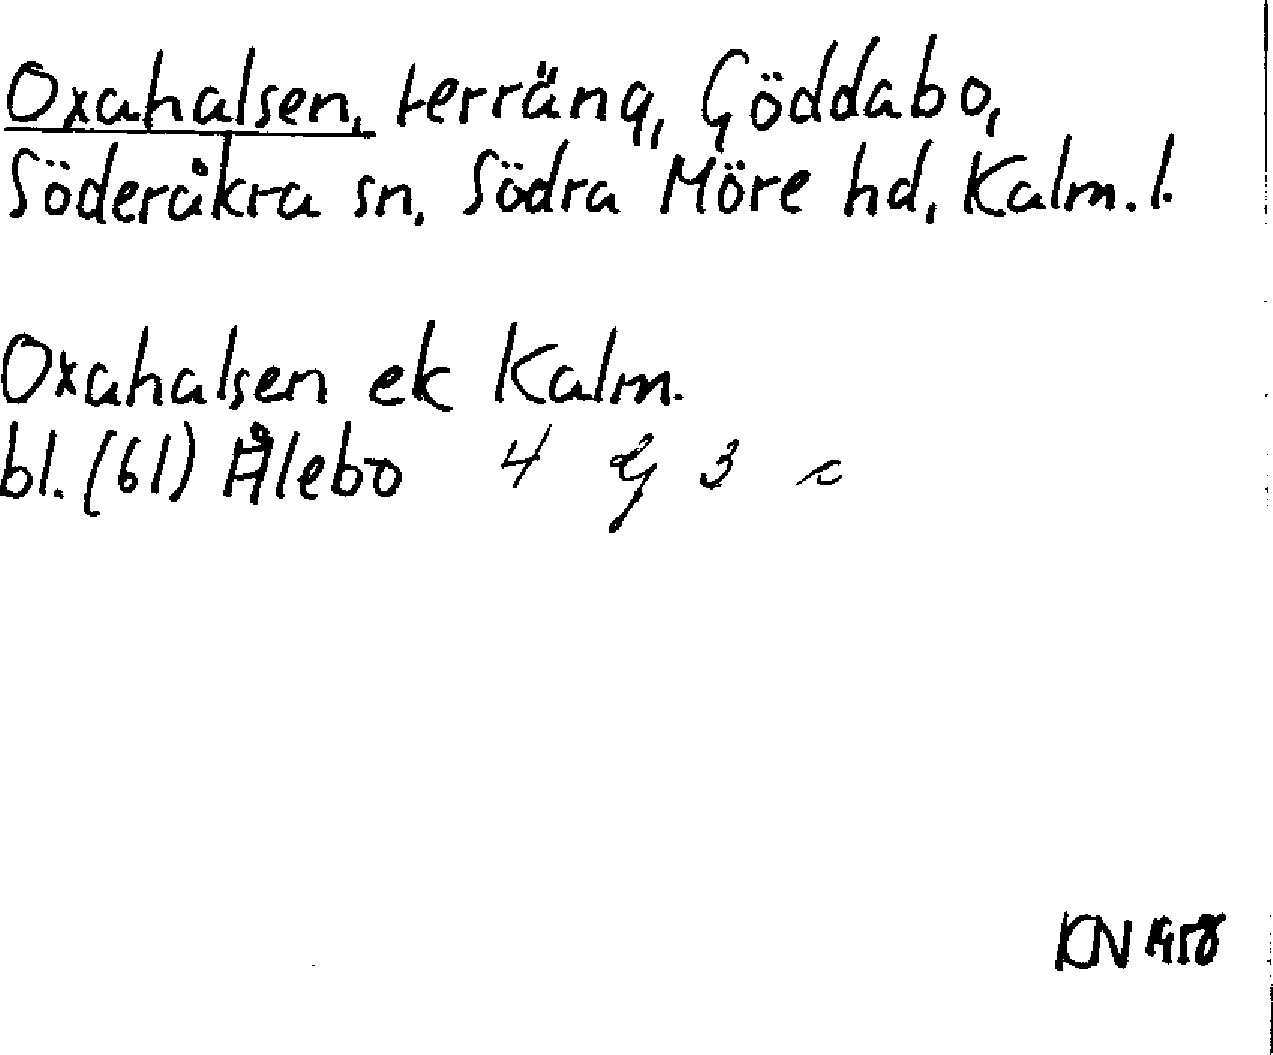 Oxahalsen, terräng, Göddabo,
Söderåkra sn, Södra Möre hd, Kalm. l.
Oxahalsen ek Kalm.
bl. (61) Ålebo 4 G 3 c
KN 1958